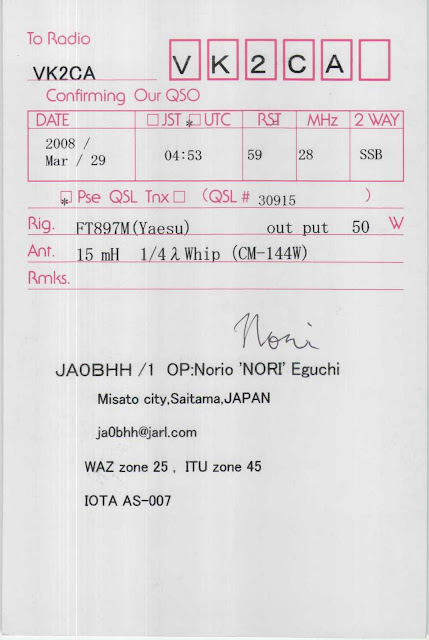 To Radio
VK2CA
V K 2 C A
Confirming Our QSO
DATE □ JST *□ UTC RST MHz 2 WAY
2008 /
Mar / 29 04:53 59 28 SSB
*□ Pse QSL Tnx □ (QSL # 30915 )
Rig. FT897M(Yaesu) out put 50 W
Ant. 15 mH 1/4 λ Whip (CM-144W)
Rmks.
Nori
JA0BHH /1 OP:Norio 'NORI' Eguchi
Misato city,Saitama,JAPAN
ja0bhh@jarl.com
WAZ zone 25 , ITU zone 45
IOTA AS-007